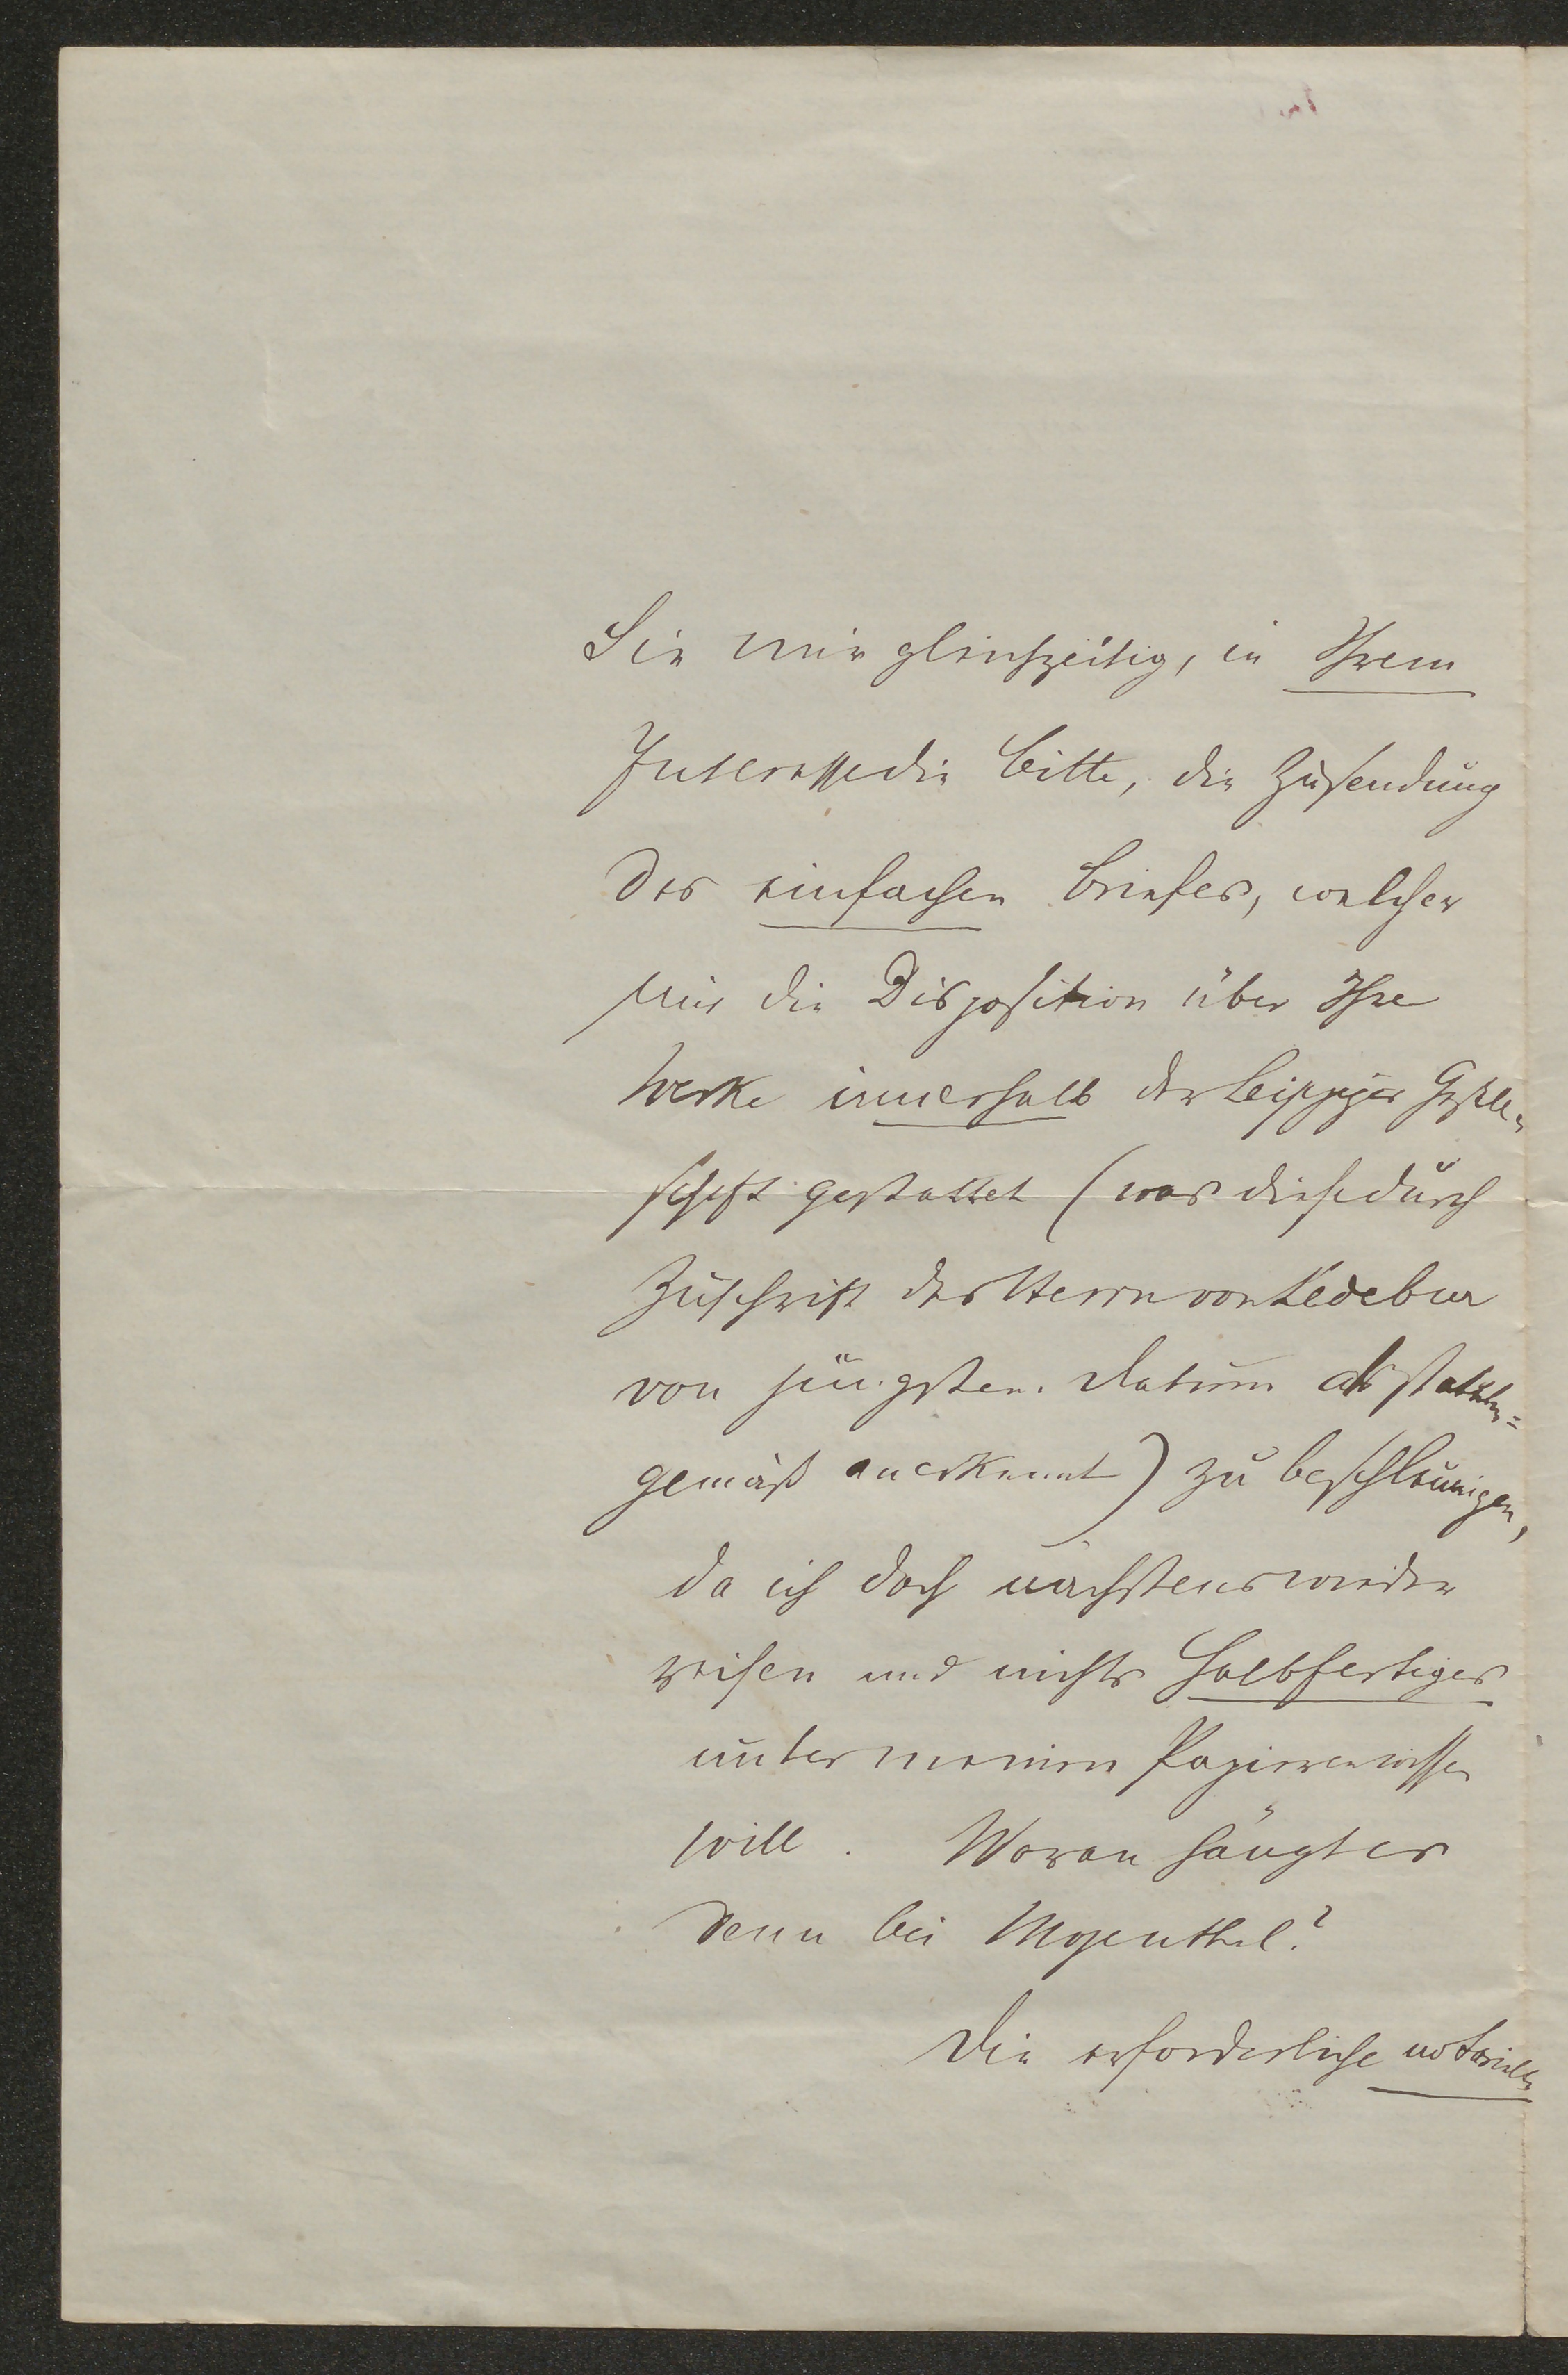 Sie mir gleichzeitig, in Ihrem
Interesse die Bitte, die Zusendung
des einfachen Briefes, welcher
mir die Disposition über Ihre
Werke innerhalb der Leipziger Gesell-
schaft gestattet (was diese durch
Zuschrift des Herrn von Ledebur
von jüngsten Datum als statuten=
gemäß anerkennt) zu beschleunigen,
da ich doch nächstens wieder
reisen und nichts Halbfertiges
unter meinen Papieren wissen
will. Woran hängt es
denn bei Mosenthal?
Die erforderliche notarielle